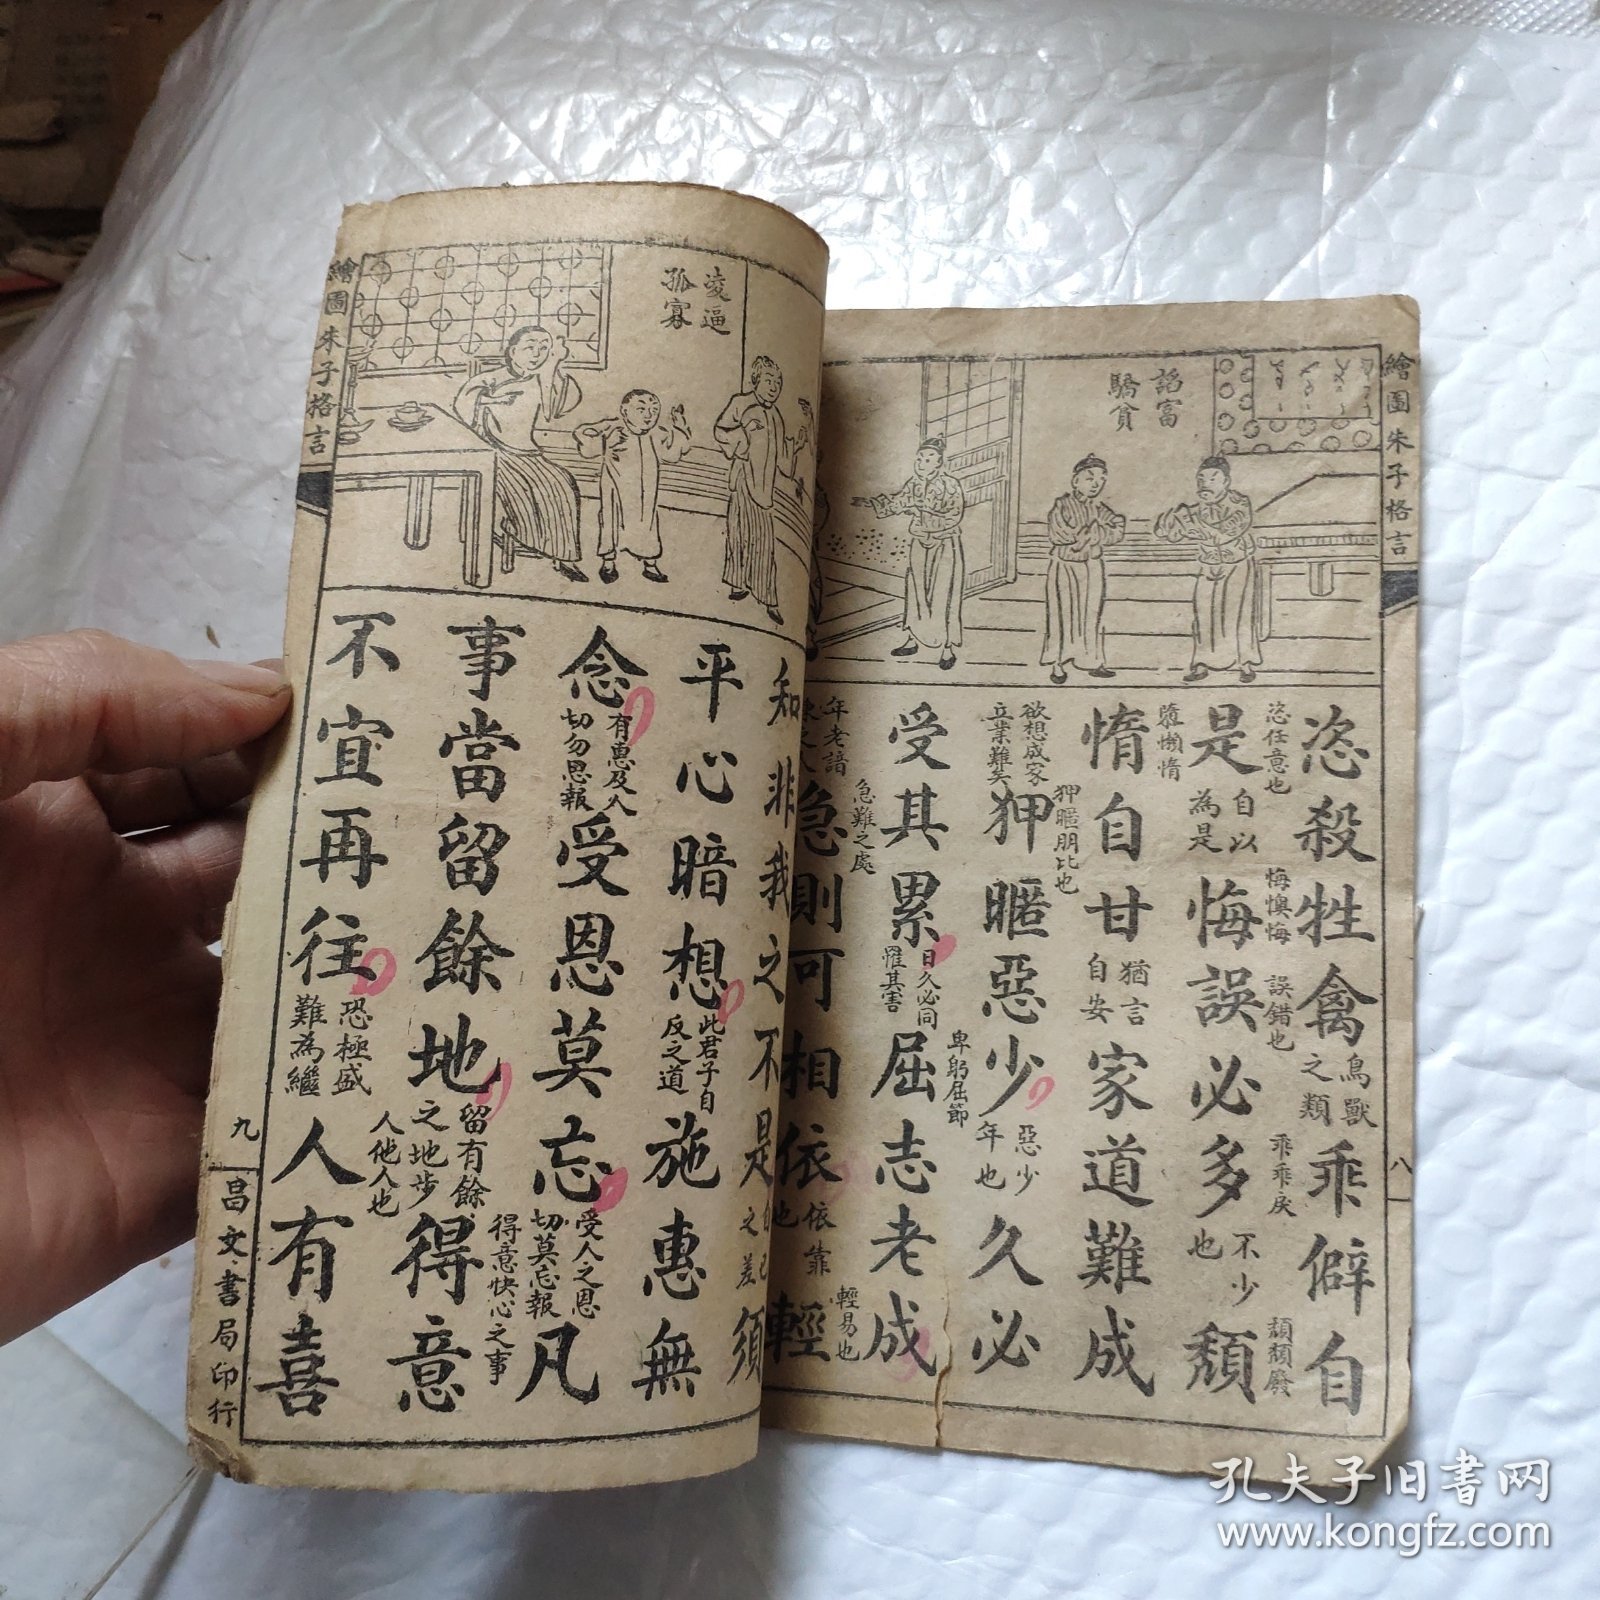 繪圖朱子格言
八
諂富
驕貧
恣殺牲禽鳥獸之類乖僻自
恣任意也 悔懊悔 誤錯也 乖乖戾 頹頹廢
是自以為是悔誤必多不少也頹
隳懶惰
惰自甘猶言自安家道難成
狎暱朋比也
欲想成家立業難矣狎暱惡少惡少年也久必
卑躬屈節
受其累日久必同罹其害屈志老成
急難之處 輕易也
年老諳之人急則可相依依靠也輕
凌逼
孤寡
知非我之不是自己之差須
平心暗想此君子自反之道施惠無
念有惠及人切勿思報受恩莫忘受人之恩切莫忘報凡
得意快心之事
事當留餘地留有餘之地步得意
人他人也
不宜再往恐極盛難為繼人有喜
繪圖朱子格言
九
昌文書局印行
孔夫子旧书网
www.kongfz.com